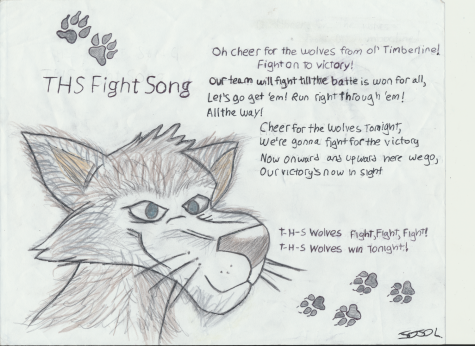 THS Fight Song
Oh cheer for the wolves from ol' Timberline!
Fight on to victory!
Our team will fight till the batte is won for all,
Let's go get 'em! Run right through 'em!
All the way!
Cheer for the Wolves Tonight,
We're gonna fight for the victory
Now onward and upward here we go,
Our victory's now in sight
T-H-S Wolves Fight, Fight, Fight!
T-H-S Wolves win Tonight!